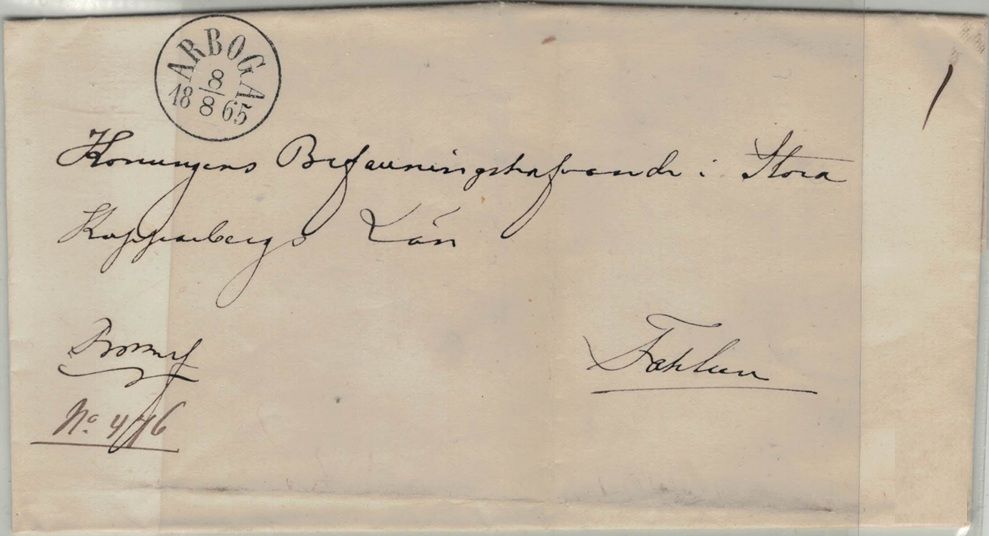 ARBOGA
8
18 8 65
Konungens Befallningshafvande i Stora
Kopparbergs Län
Fahlun
No. 476